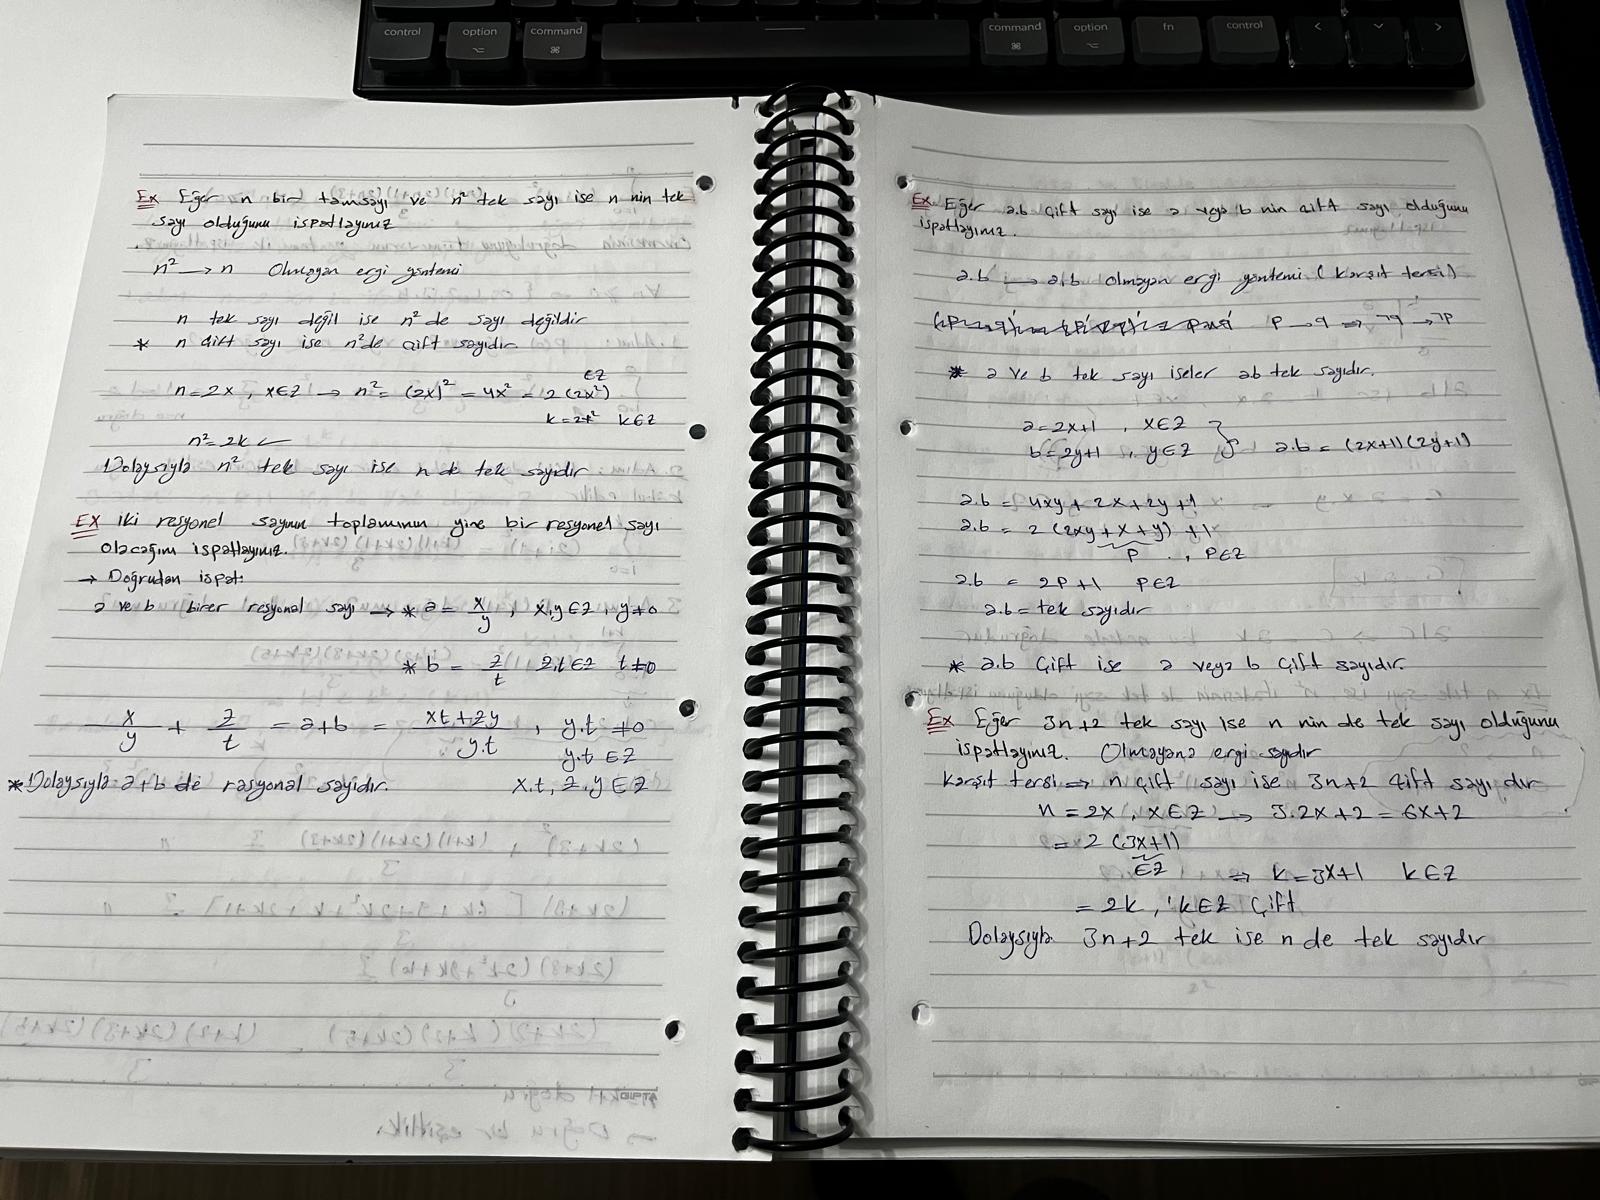 control
option
command
command
option
fn
control
Ex Eğer n bir tamsayı ve n² tek sayı ise n nin tek
sayı olduğunu ispatlayınız
n² → n Olmayan ergi yöntemi
n tek sayı değil ise n² de sayı değildir
* n çift sayı ise n² de çift sayıdır
n = 2x, x∈Z → n² = (2x)² = 4x² = 2 (2x²)
∈Z
k = 2x² k∈Z
n² = 2k ✓
Dolaysıyla n² tek sayı ise n de tek sayıdır
Ex iki resyonel sayının toplamının yine bir resyonel sayı
olacağını ispatlayınız.
→ Doğrudan ispat:
a ve b birer resyonal sayı → * a = x/y, x,y∈Z, y≠0
* b = z/t z,t∈Z t≠0
x/y + z/t = a+b = xt+zy/y.t, y.t ≠0
y.t ∈Z
* Dolaysıyla a+b de rasyonal sayıdır. x.t, z.y∈Z
Ex Eğer a.b çift sayı ise a veya b nin çift sayı olduğunu
ispatlayınız.
a.b → a,b olmayan ergi yöntemi (karşıt tersi)
p→q ⇒ ¬q→¬p
* a ve b tek sayı iseler ab tek sayıdır.
a = 2x+1, x∈Z
b = 2y+1, y∈Z } a.b = (2x+1)(2y+1)
a.b = 4xy + 2x + 2y + 1
a.b = 2 (2xy + x + y) + 1
p, p∈Z
a.b = 2p+1 p∈Z
a.b = tek sayıdır
* a.b çift ise a veya b çift sayıdır.
Ex Eğer 3n+2 tek sayı ise n nin de tek sayı olduğunu
ispatlayınız. Olmayana ergi sayıdır
karşıt tersi ⇒ n çift sayı ise 3n+2 çift sayı dır
n = 2x, x∈Z → 3.2x+2 = 6x+2
= 2 (3x+1)
∈Z ⇒ k = 3x+1 k∈Z
= 2k, k∈Z çift
Dolaysıyla 3n+2 tek ise n de tek sayıdır